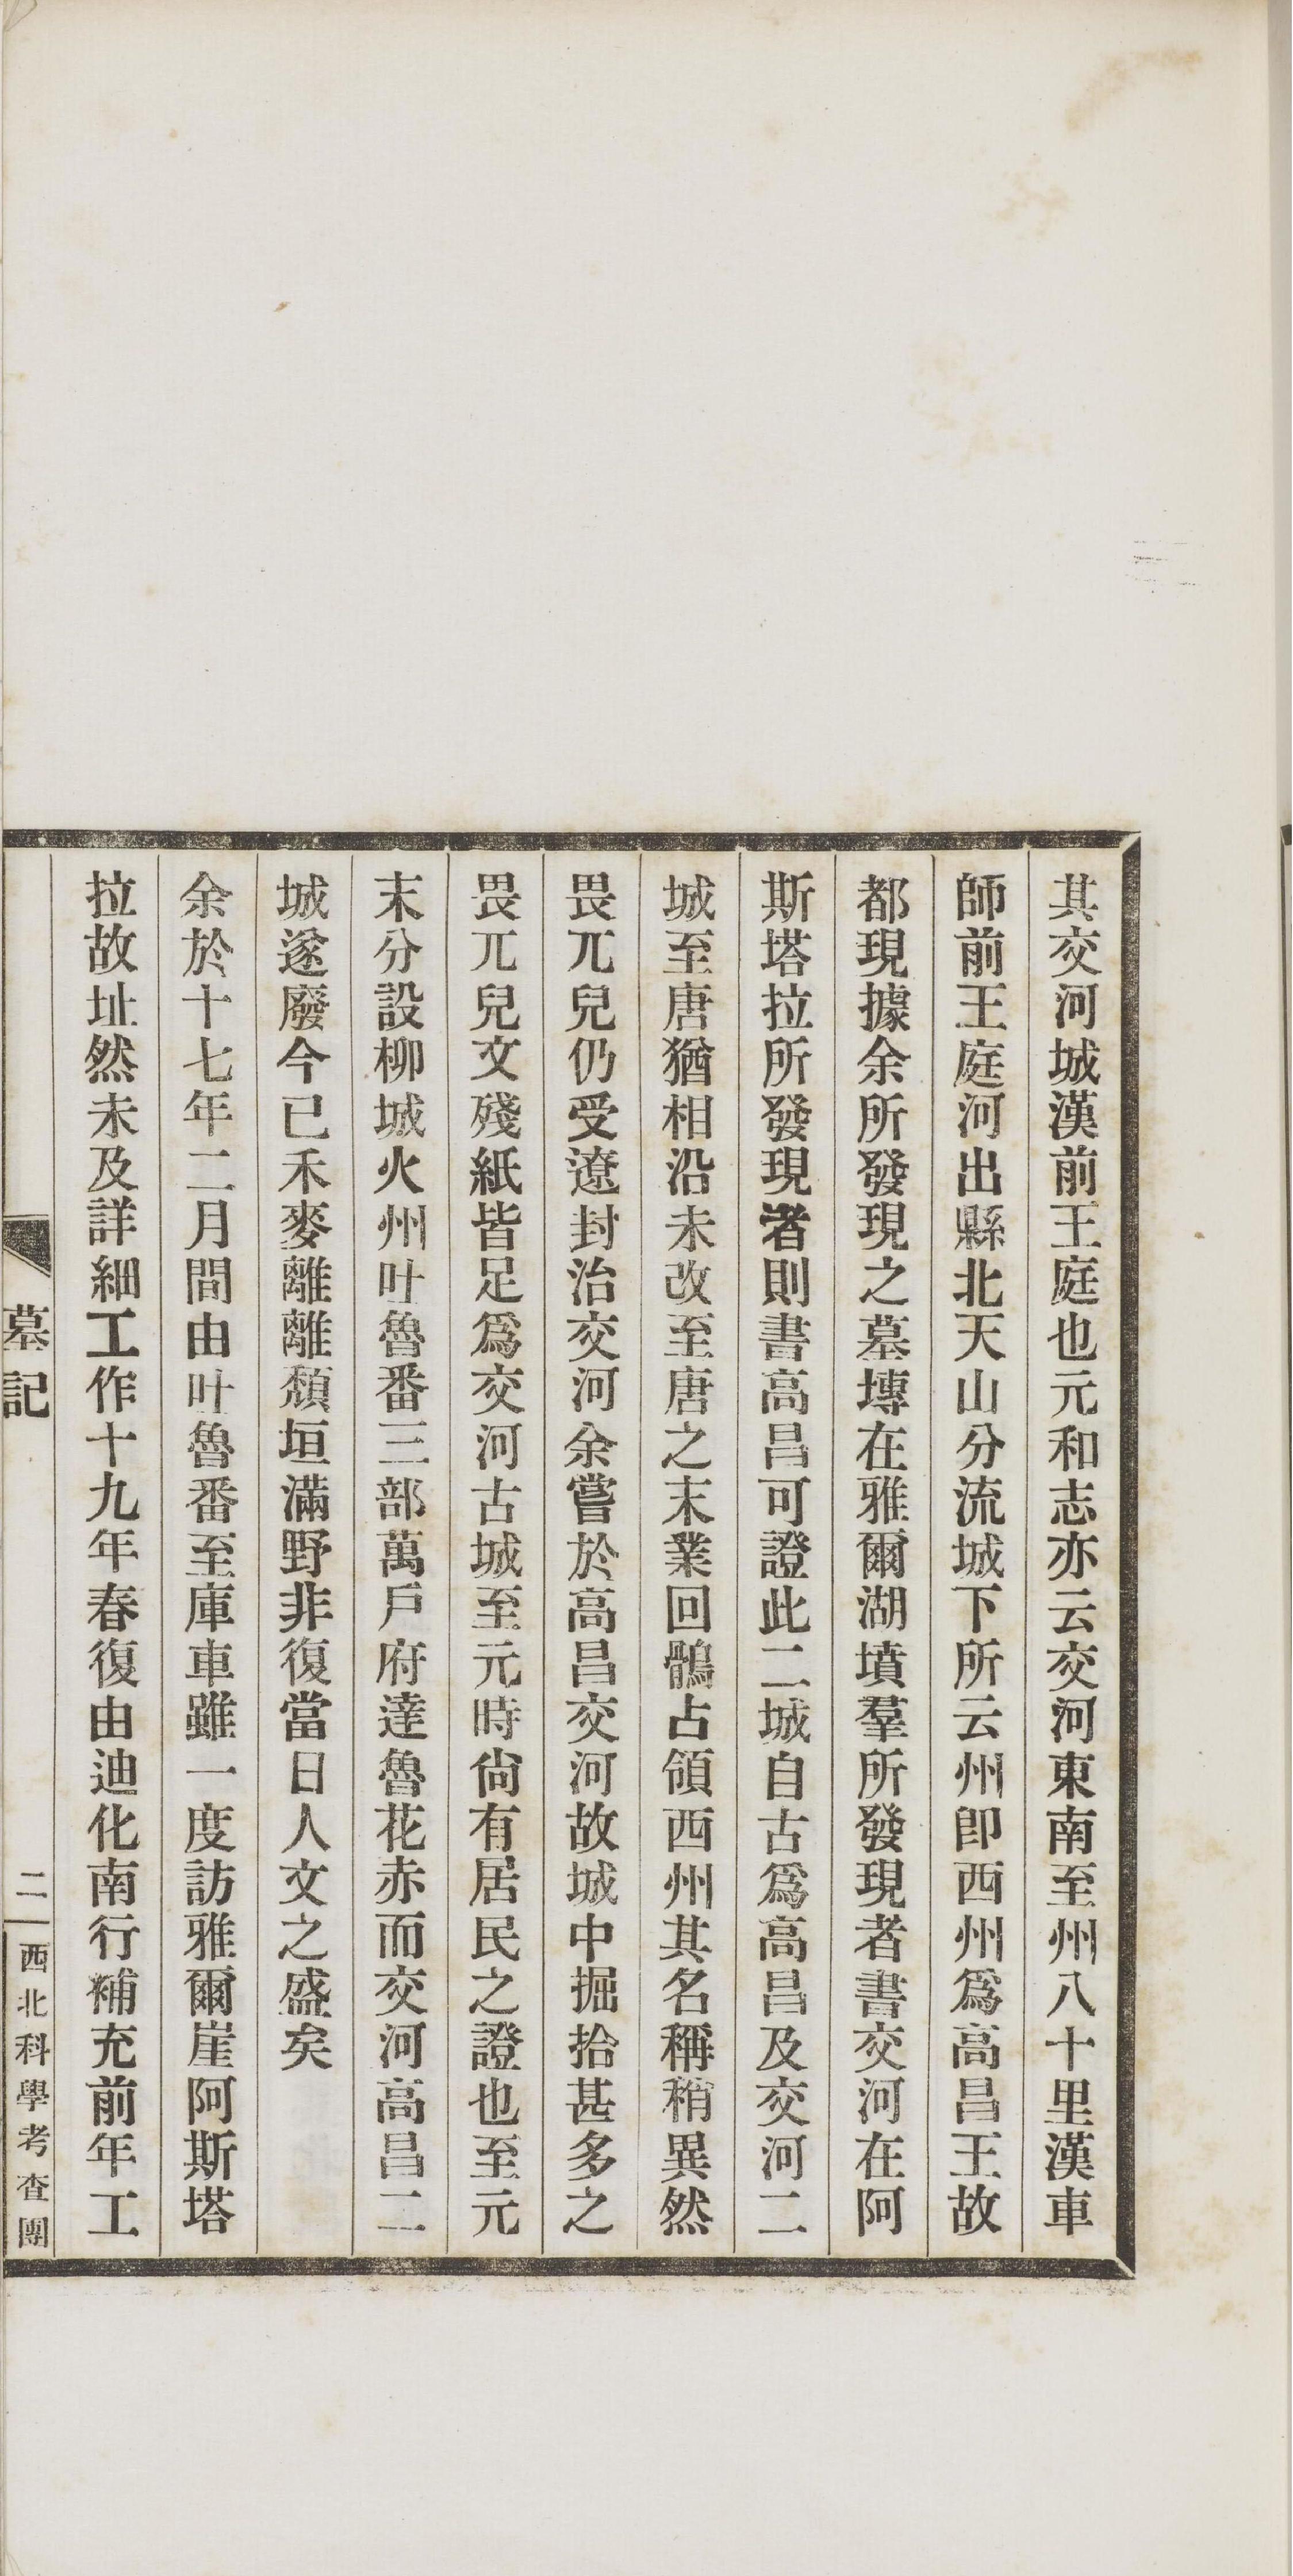 其交河城漢前王庭也元和志亦云交河東南至州八十里漢車
師前王庭河出縣北天山分流城下所云州卽西州爲高昌王故
都現據余所發現之墓塼在雅爾湖墳羣所發現者書交河在阿
斯塔拉所發現者則書高昌可證此二城自古爲高昌及交河二
城至唐猶相沿未改至唐之末業回鶻占領西州其名稱稍異然
畏兀兒仍受遼封治交河余嘗於高昌交河故城中掘拾甚多之
畏兀兒文殘紙皆足爲交河古城至元時尙有居民之證也至元
末分設柳城火州吐魯番三部萬戶府達魯花赤而交河高昌二
城遂廢今已禾麥離離頹垣滿野非復當日人文之盛矣
余於十七年二月間由吐魯番至庫車雖一度訪雅爾崖阿斯塔
拉故址然未及詳細工作十九年春復由迪化南行補充前年工
墓記
二
西北科學考查團